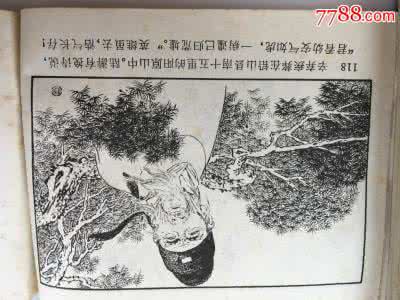 7788.com
118 辛弃疾葬在铅山县南十五里的阳原山中。陆游有挽诗说，
“君看幼安气如虎，一病遽已归荒墟。”英雄虽去，浩气长存！